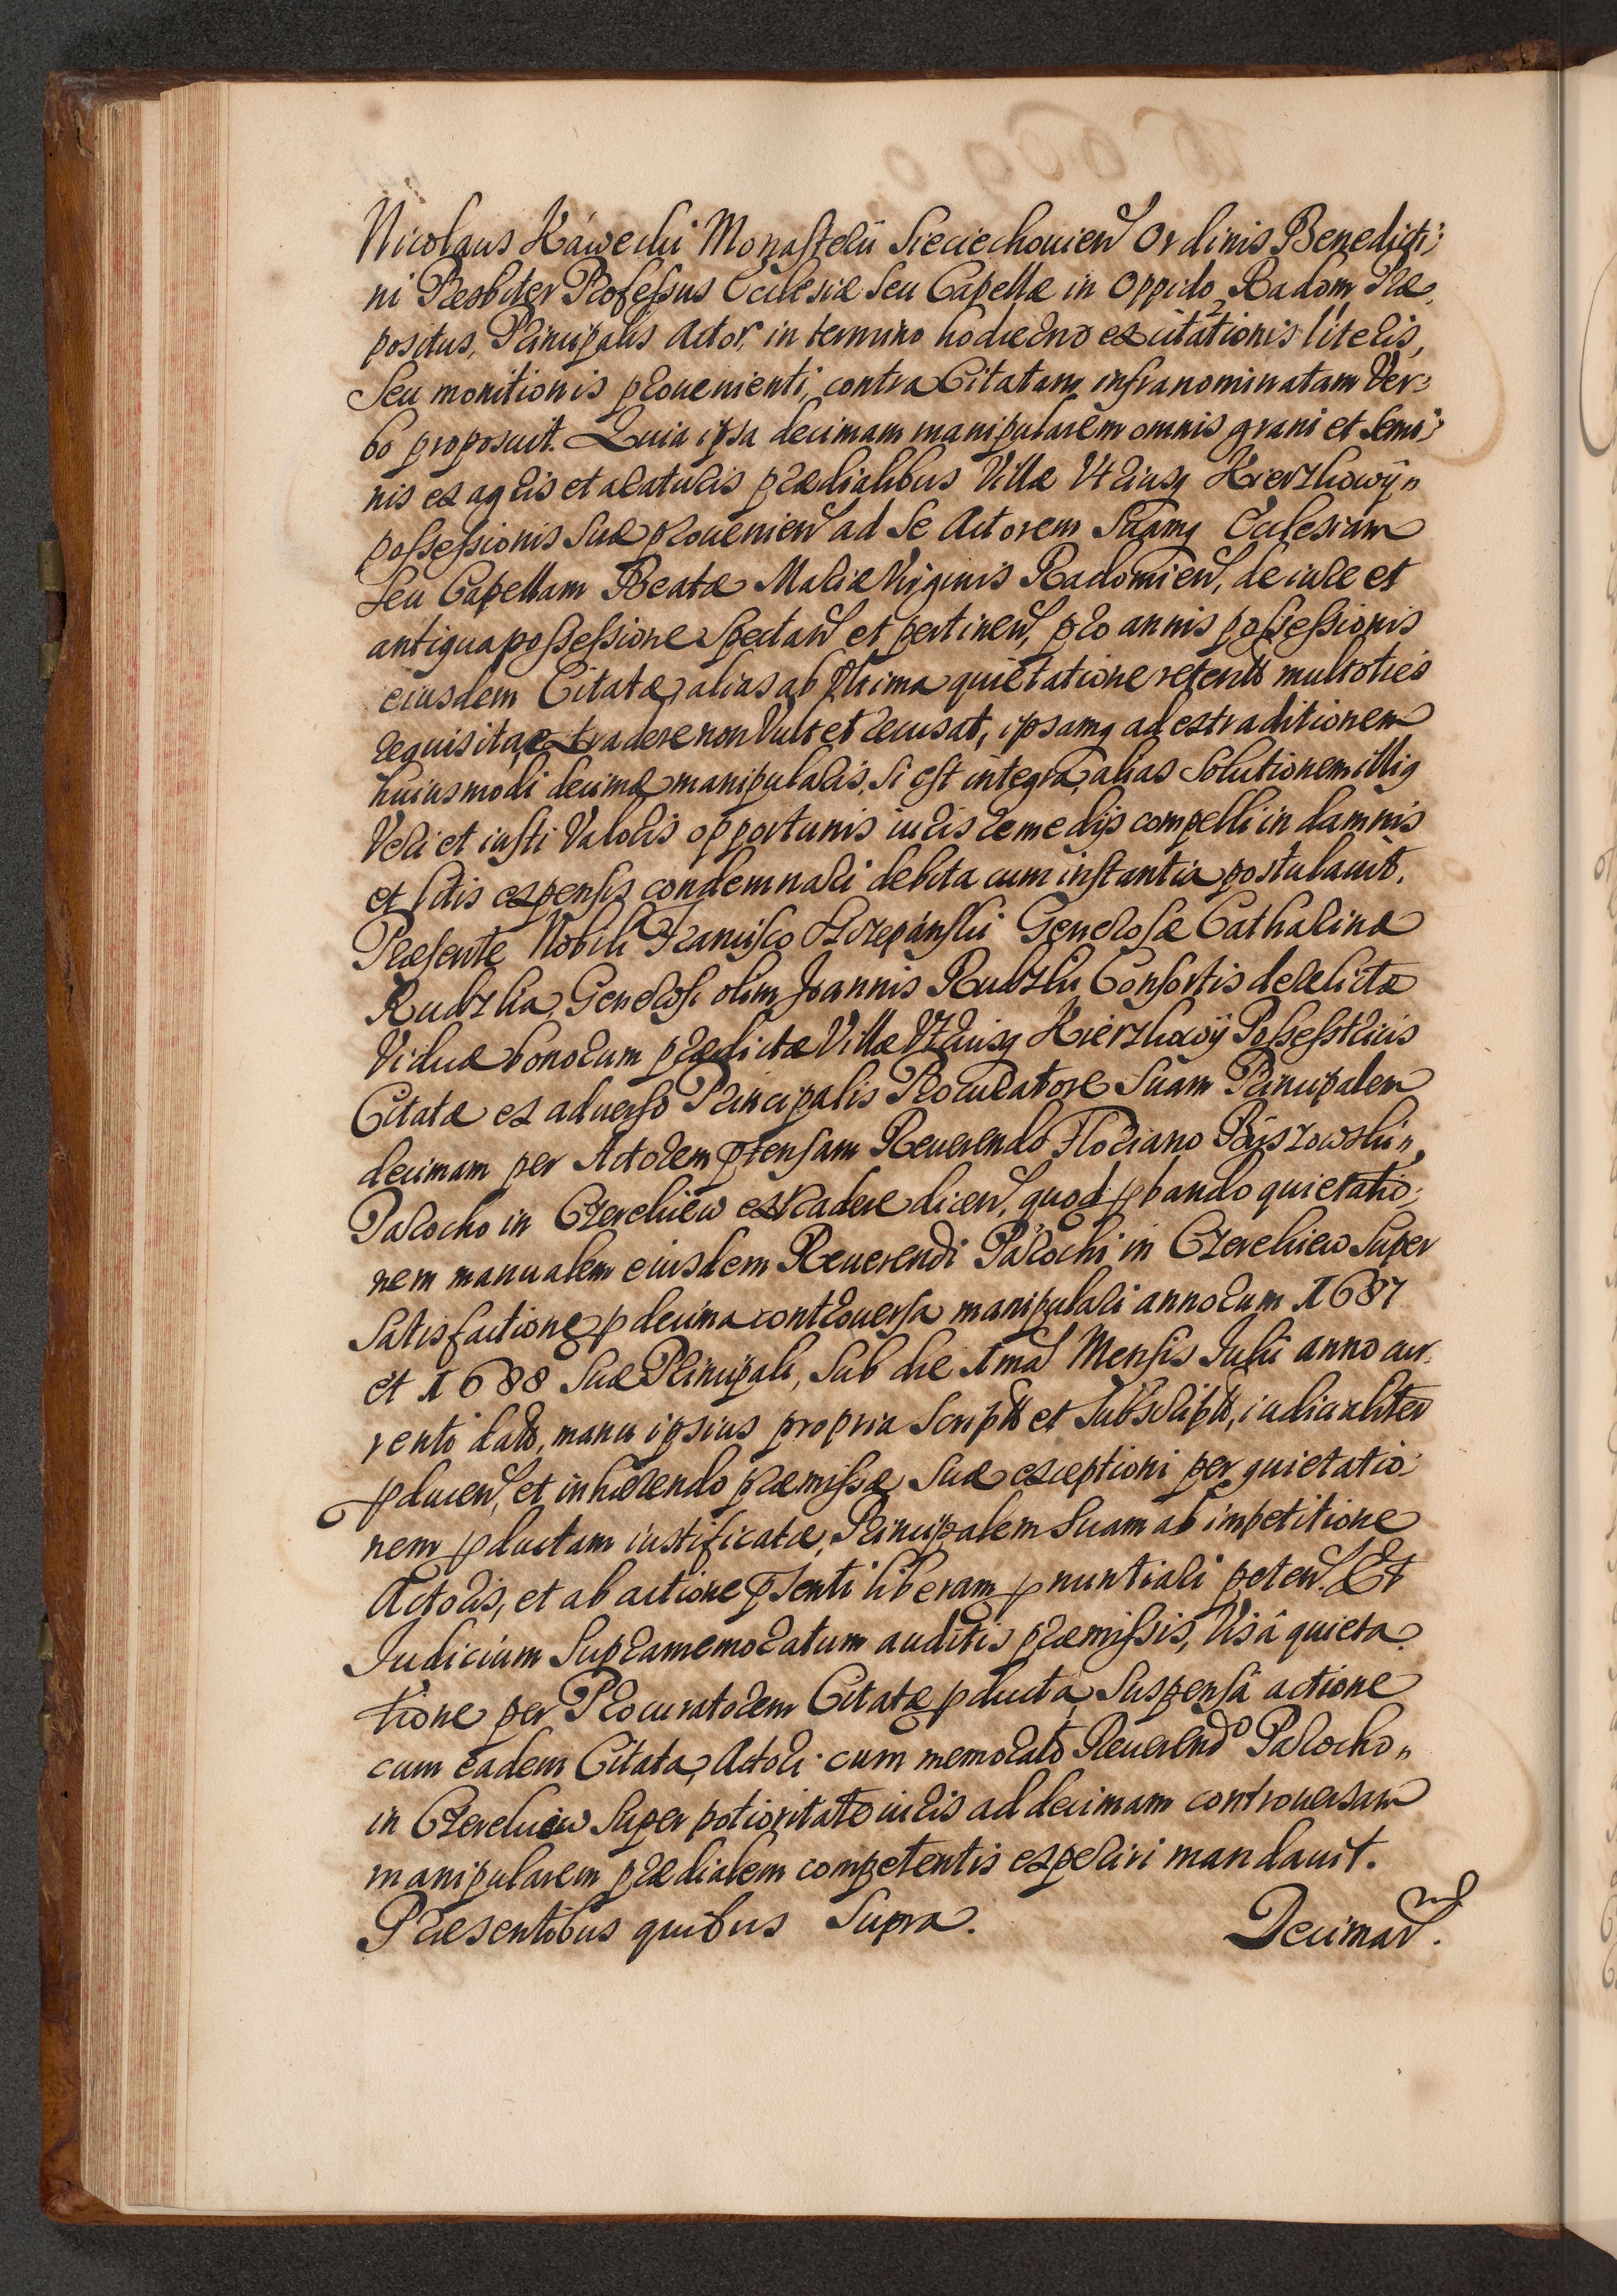 Nicolaus Káwecki Monasterii Sieciechouien Ordinis Benedicti:
ni Præsbiter Professus Ecclesiæ seu Capellæ in Oppido Radom Præ,
positus, Principalis Actor, in termino hodierno ex citationis literis,
Seu monitionis prouenienti, contra Citatam infranominatam Ver:
bo proposuit. Quia ipsa decimam manipularem omnis grani et semi:
nis ex agris et araturis prædialibus Villæ Vtriusq Kierzkowÿ„
possessionis suæ prouenien ad se Actorem Suamq Ecclesiam
seu Capellam Beatæ Mariæ Virginis Radomien, de iure et
antiqua possessione spectan et pertinen, pro annis possessionis
eiusdem Citatæ, alias ab vltima quietatione retent multoties
requisita, extradere non vult et recusat, ipsamq ad extraditionem
huiusmodi decimæ manipularis, si est integra, alias solutionem illig
Veri et iusti valoris opportunis iuris remedijs compelli in damnis
et litis expensis condemnari debita cum instantia postulauit.
Præsente Nobili Francisco Szczepánski Generosæ Catharinæ
Rudzka, Generosi olim Joannis Rudzki Consortis derelictæ
Viduæ bonorum prædictæ Villæ Vtriusq Kierzkowÿ Possestricis
Citatæ ex aduerso Principalis Procuratore Suam Principalem
decimam per Actorem ptensam Reuerendo Floriano Byszowski„
Parocho in Czerekiew extradere dicen, quod pbando quietatio:
nem manualem eiusdem Reuerendi Parochi in Czerekiew super
Satisfactione p decima controuersa manipulari annorum 1687
et 1688 suæ Principali, sub die 1ma Mensis Julii anno cur:
renti dat, manu ipsius propria script et subscript, iudicialiter
pducen, et inhærendo præmissæ suæ exceptioni per quietatio:
nem pductam iustificatæ, Principalem suam ab impetitione
Actoris, et ab actione psenti liberam pnuntiari peten. Et
Judicium supramemoratum auditis præmissis, Visâ quieta:
tione per Procuratorem Citatæ pducta, Suspensâ actione
cum eadem Citata, Actori cum memorato Reuerendo Parocho„
in Czerekiew super potioritate iuris ad decimam controuersam
manipularem prædialem competentis experiri mandauit.
Præsentibus quibus supra. Decimar.